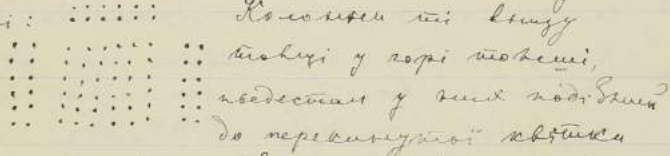 і:
Колонки ті внизу
товщі у горі тонші,
пьедестал у них подібний
до перекинутої квітки